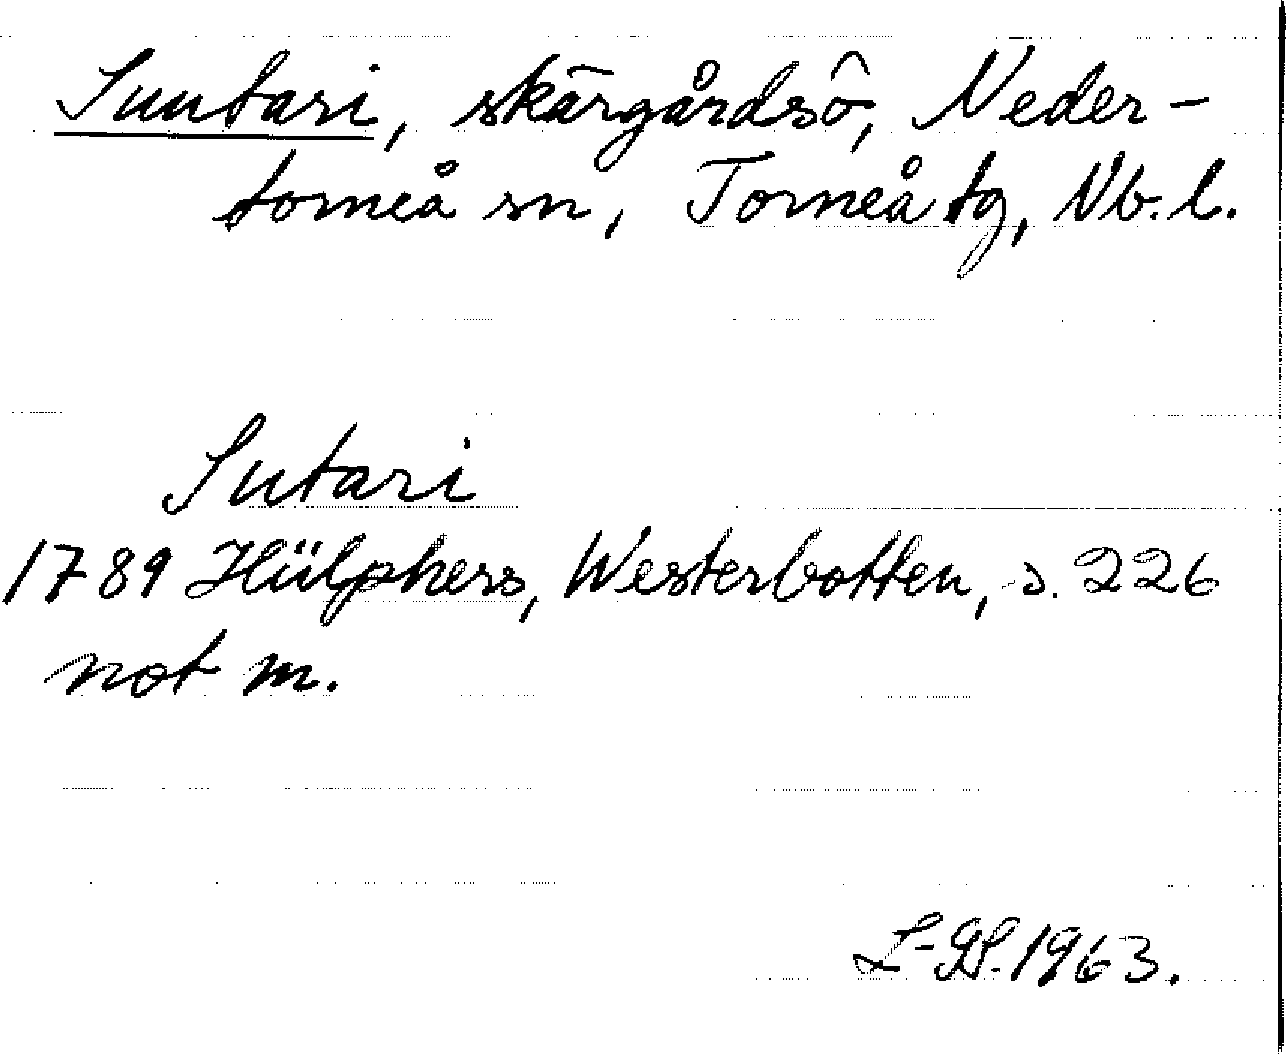 Suutari, skärgårdsö, Neder-
torneå sn, Torneå tg, Nb. l.
Sutari
1789 Hülphers, Westerbotten, s. 226
not m.
L-GS. 1963.